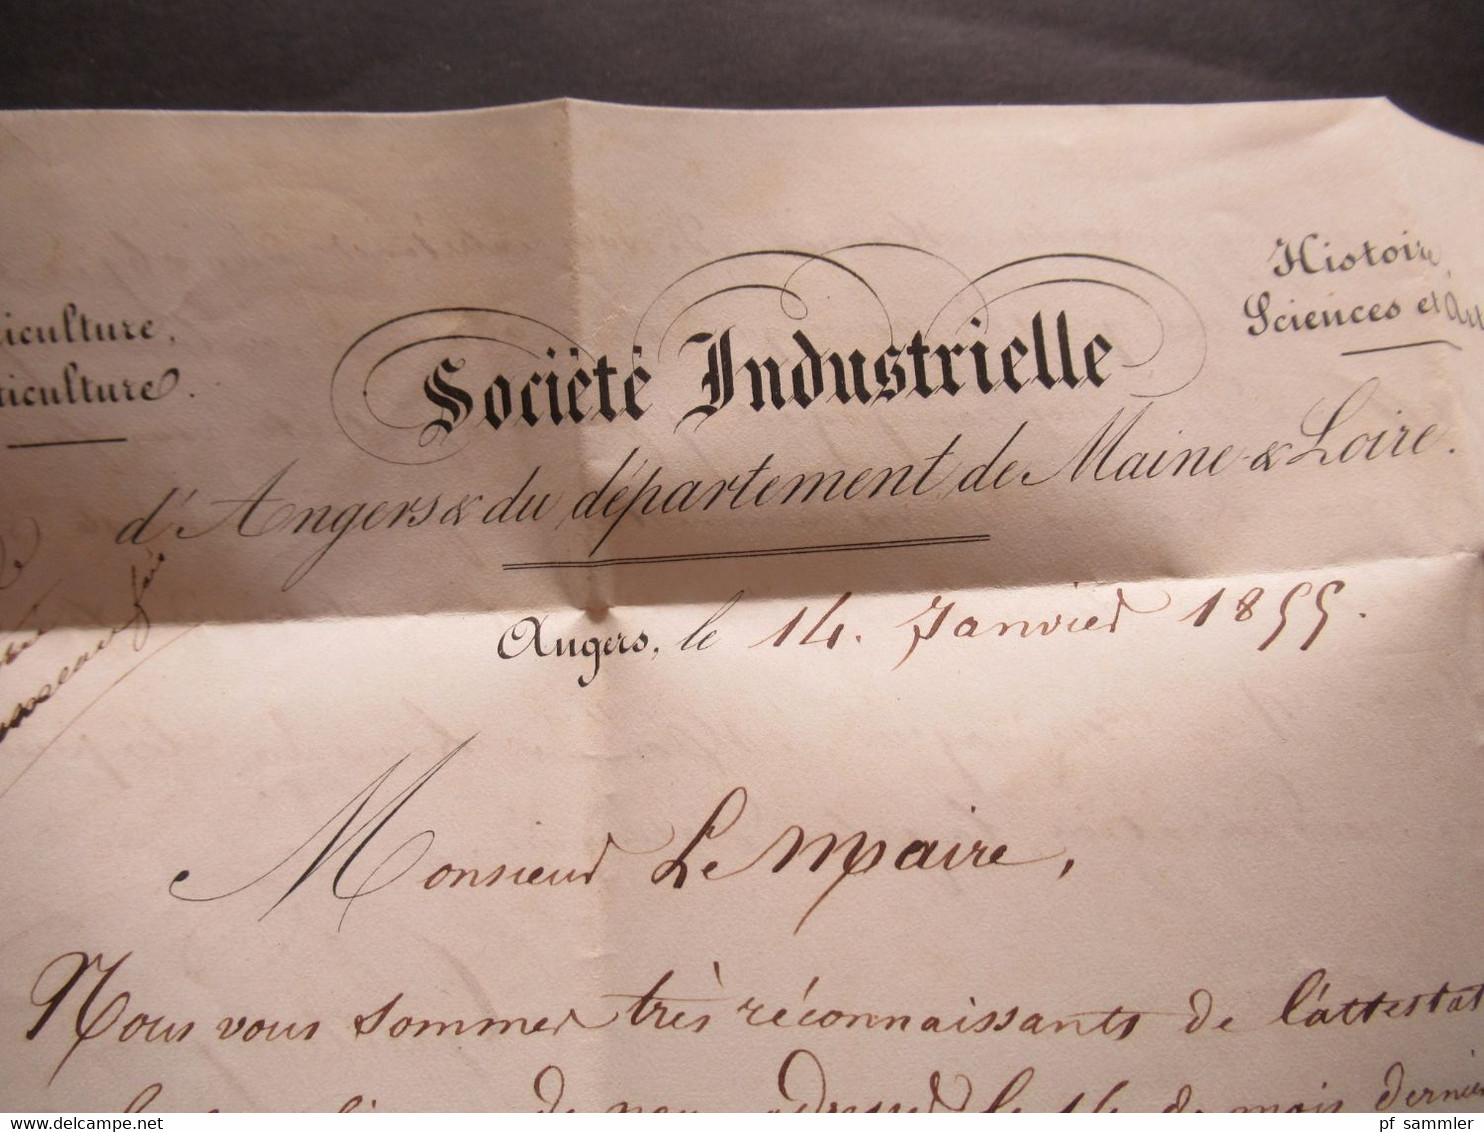 Histoire,
Sciences et Art
iculture,
ticulture.
Société Industrielle
d'Angers & du département de Maine & Loire.
Angers, le 14. Janvier 1855.
Monsieur Le Maire,
Nous vous sommes très réconnaissants de l'attestat
de adresser le 14 du mois dernier
delcampe.net
pf_sammler